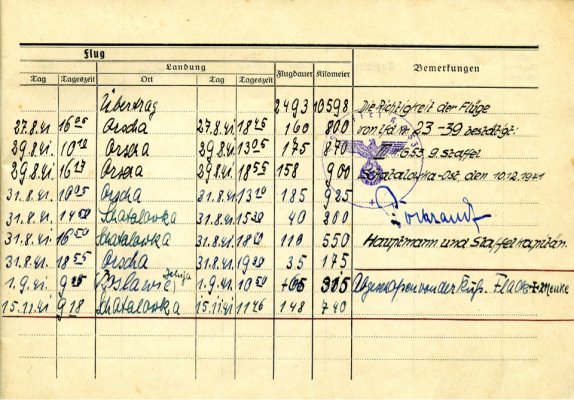 Flug
Landung
Tag Tageszeit Ort Tag Tageszeit Flugdauer Kilometer Bemerkungen
Übertrag 2493 10598 Die Richtigkeit der Flüge
27.8.41 16 05 Orscha 27.8.41 18 45 160 800 von lfd. Nr. 23-39 bestätigt:
29.8.41 10 10 Orscha 29.8.41 13 05 175 870 9. Staffel
29.8.41 16 17 Orscha 29.8.41 18 55 158 900 Schatalowka-Ost, den 10.12.1941
31.8.41 10 05 Orscha 31.8.41 13 10 185 925
31.8.41 14 50 Schatalowka 31.8.41 15 30 40 200
31.8.41 16 50 Schatalowka 31.8.41 110 550 Hauptmann und Staffelkapitän.
31.8.41 18 55 Orscha 31.8.41 19 30 35 175
1.9.41 9 45 1.9.41 10 50 65 315 Abgeschossen von der Russ. Flack
15.11.41 9 18 Schatalowka 15.11.41 11 46 148 740